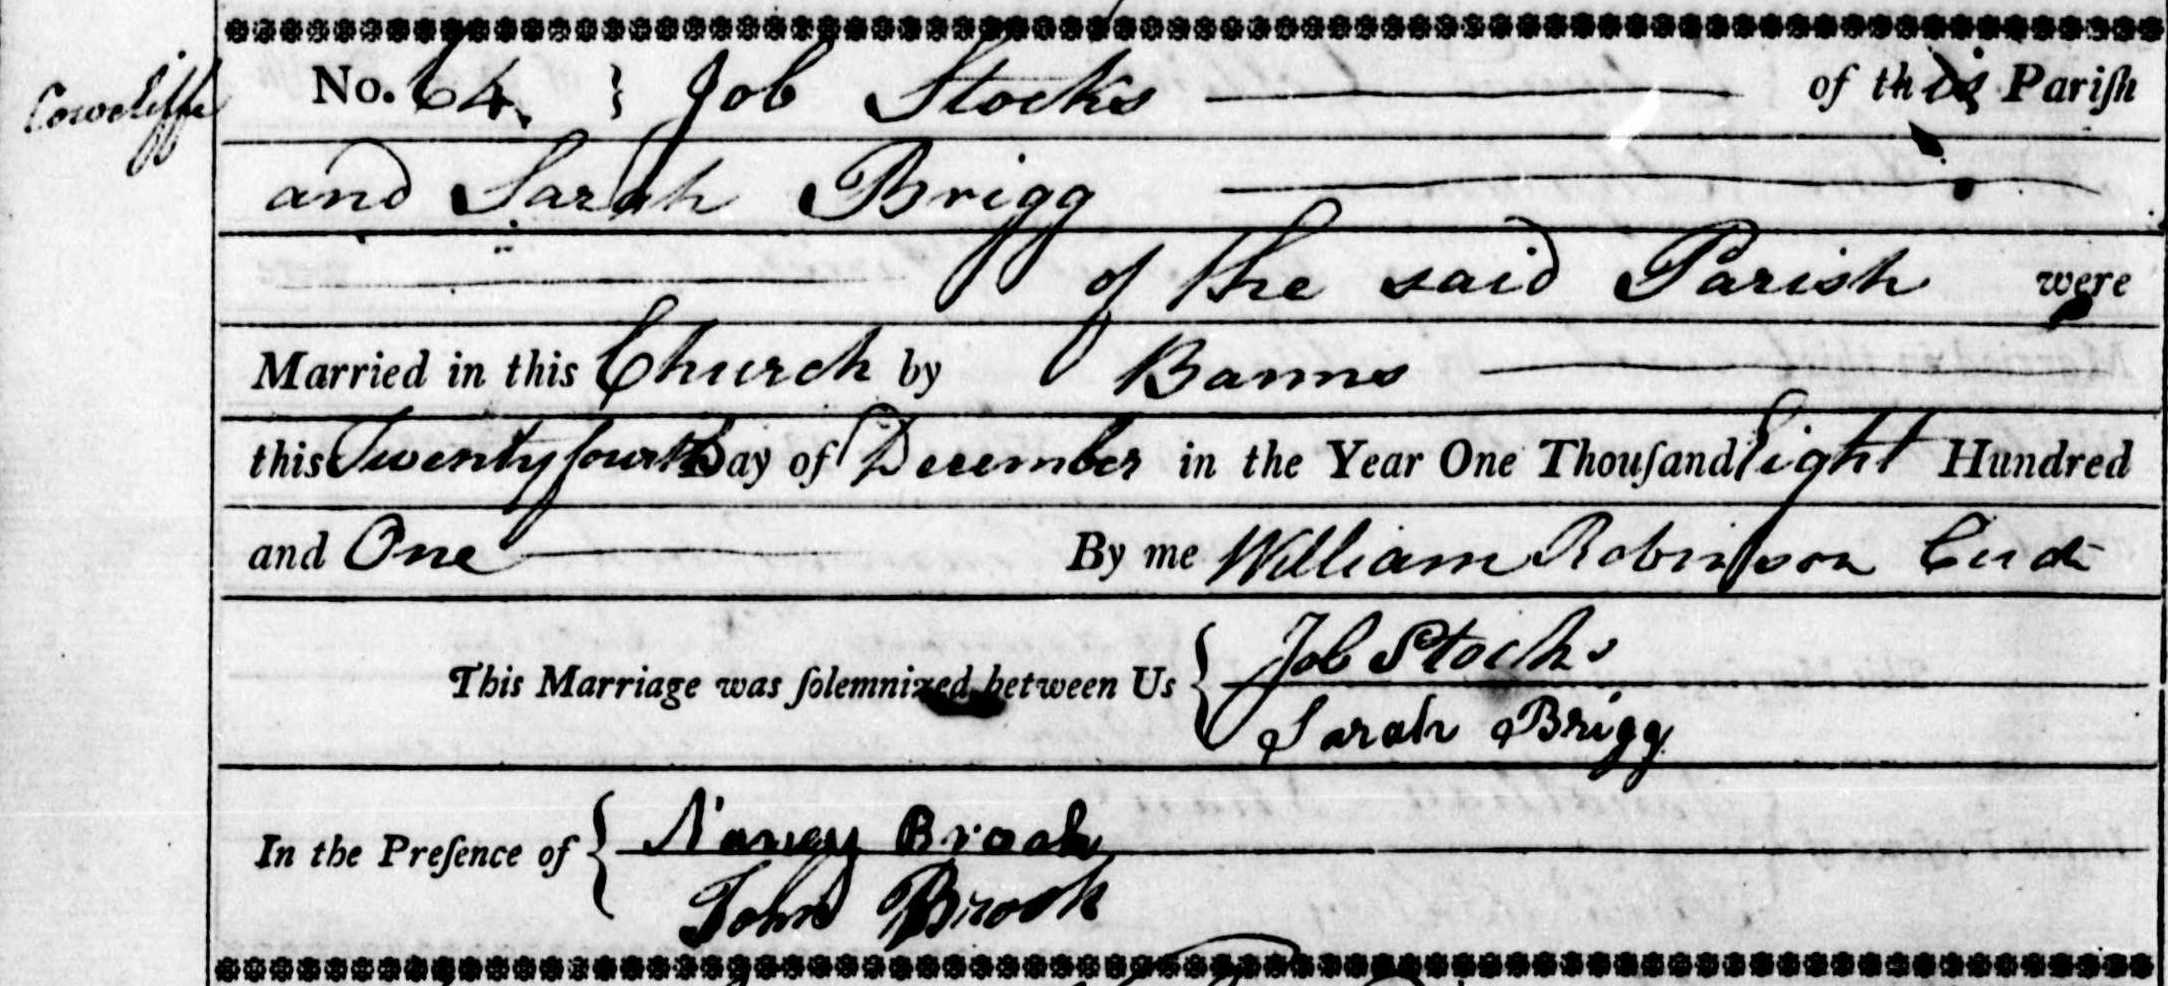 Cowcliffe
No. 64 } Job Stocks of this Pariſh
and Sarah Brigg
of the said Parish were
Married in this Church by Banns
this Twenty fourth Day of December in the Year One Thouſand Eight Hundred
and One By me William Robinſson
This Marriage was ſolemnized between Us { Job Stocks
Sarah Brigg
In the Preſence of { Nancy Brook
John Brook